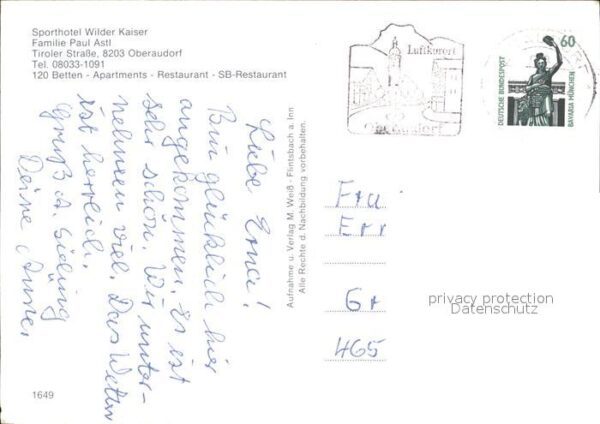 Sporthotel Wilder Kaiser
Familie Paul Astl
Tiroler Straße, 8203 Oberaudorf
Tel. 08033-1091
120 Betten - Apartments - Restaurant - SB-Restaurant
Liebe Erna!
Bin glücklich hier
angekommen. Es ist
sehr schön. Wir unter-
nehmen viel. Das Wetter
ist herrlich.
Gruß a.
Deine Anne.
1649
Aufnahme u. Verlag M. Weiß · Flintsbach a. Inn
Alle Rechte d. Nachbildung vorbehalten.
Luftkurort
Oberaudorf
60
DEUTSCHE BUNDESPOST
BAVARIA MÜNCHEN
Frau
Err
Gt
465
privacy protection
Datenschutz